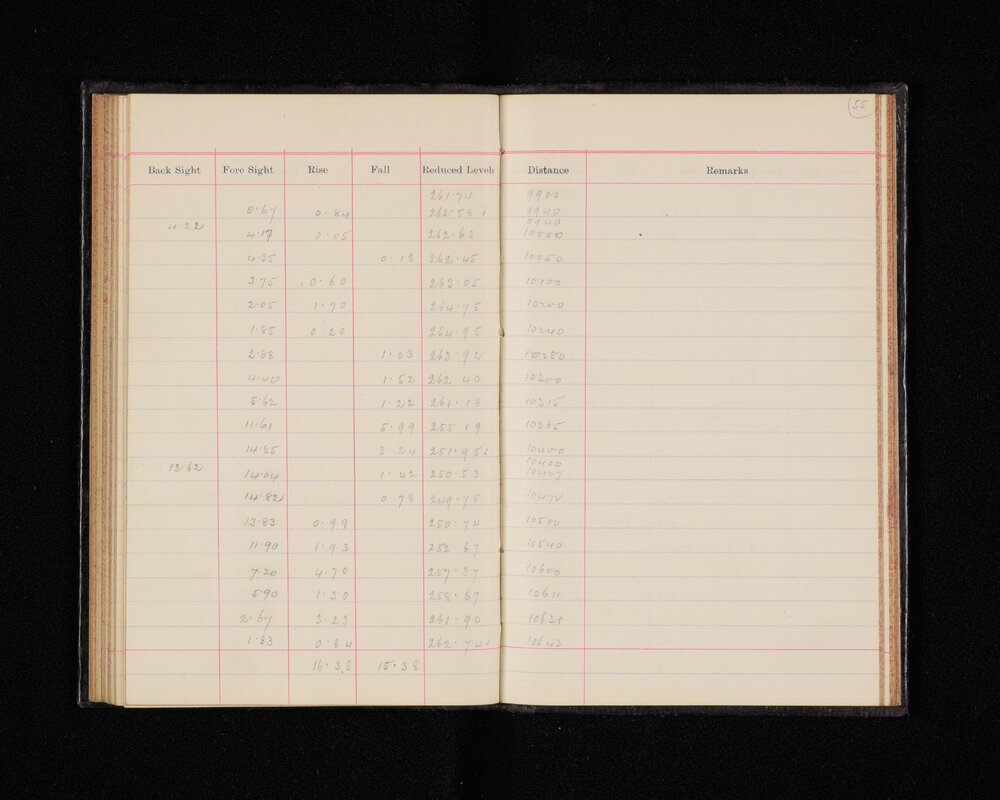 55
Back Sight Fore Sight Rise Fall Reduced Levels Distance Remarks
261.74 9900
0.67 0.84 262.58 9940
4.22 9940
4.17 0.05 262.63 10000
4.35 0.18 262.45 10050
3.75 0.60 263.05 10100
2.05 1.70 264.75 10200
1.85 0.20 264.95 10240
2.88 1.03 263.92 10280
4.40 1.52 262.40 10300
5.62 1.22 261.18 10315
11.61 5.99 255.19 10365
14.85 3.24 251.95 10400
12.62 10400
14.04 1.42 250.53 10427
14.82 0.78 249.75
13.83 0.99 250.74 10500
11.90 1.93 252.67 10540
7.20 4.70 257.37 10600
5.90 1.30 258.67 10611
2.67 3.23 261.90
1.83 0.84 262.74 10643
16.38 15.38